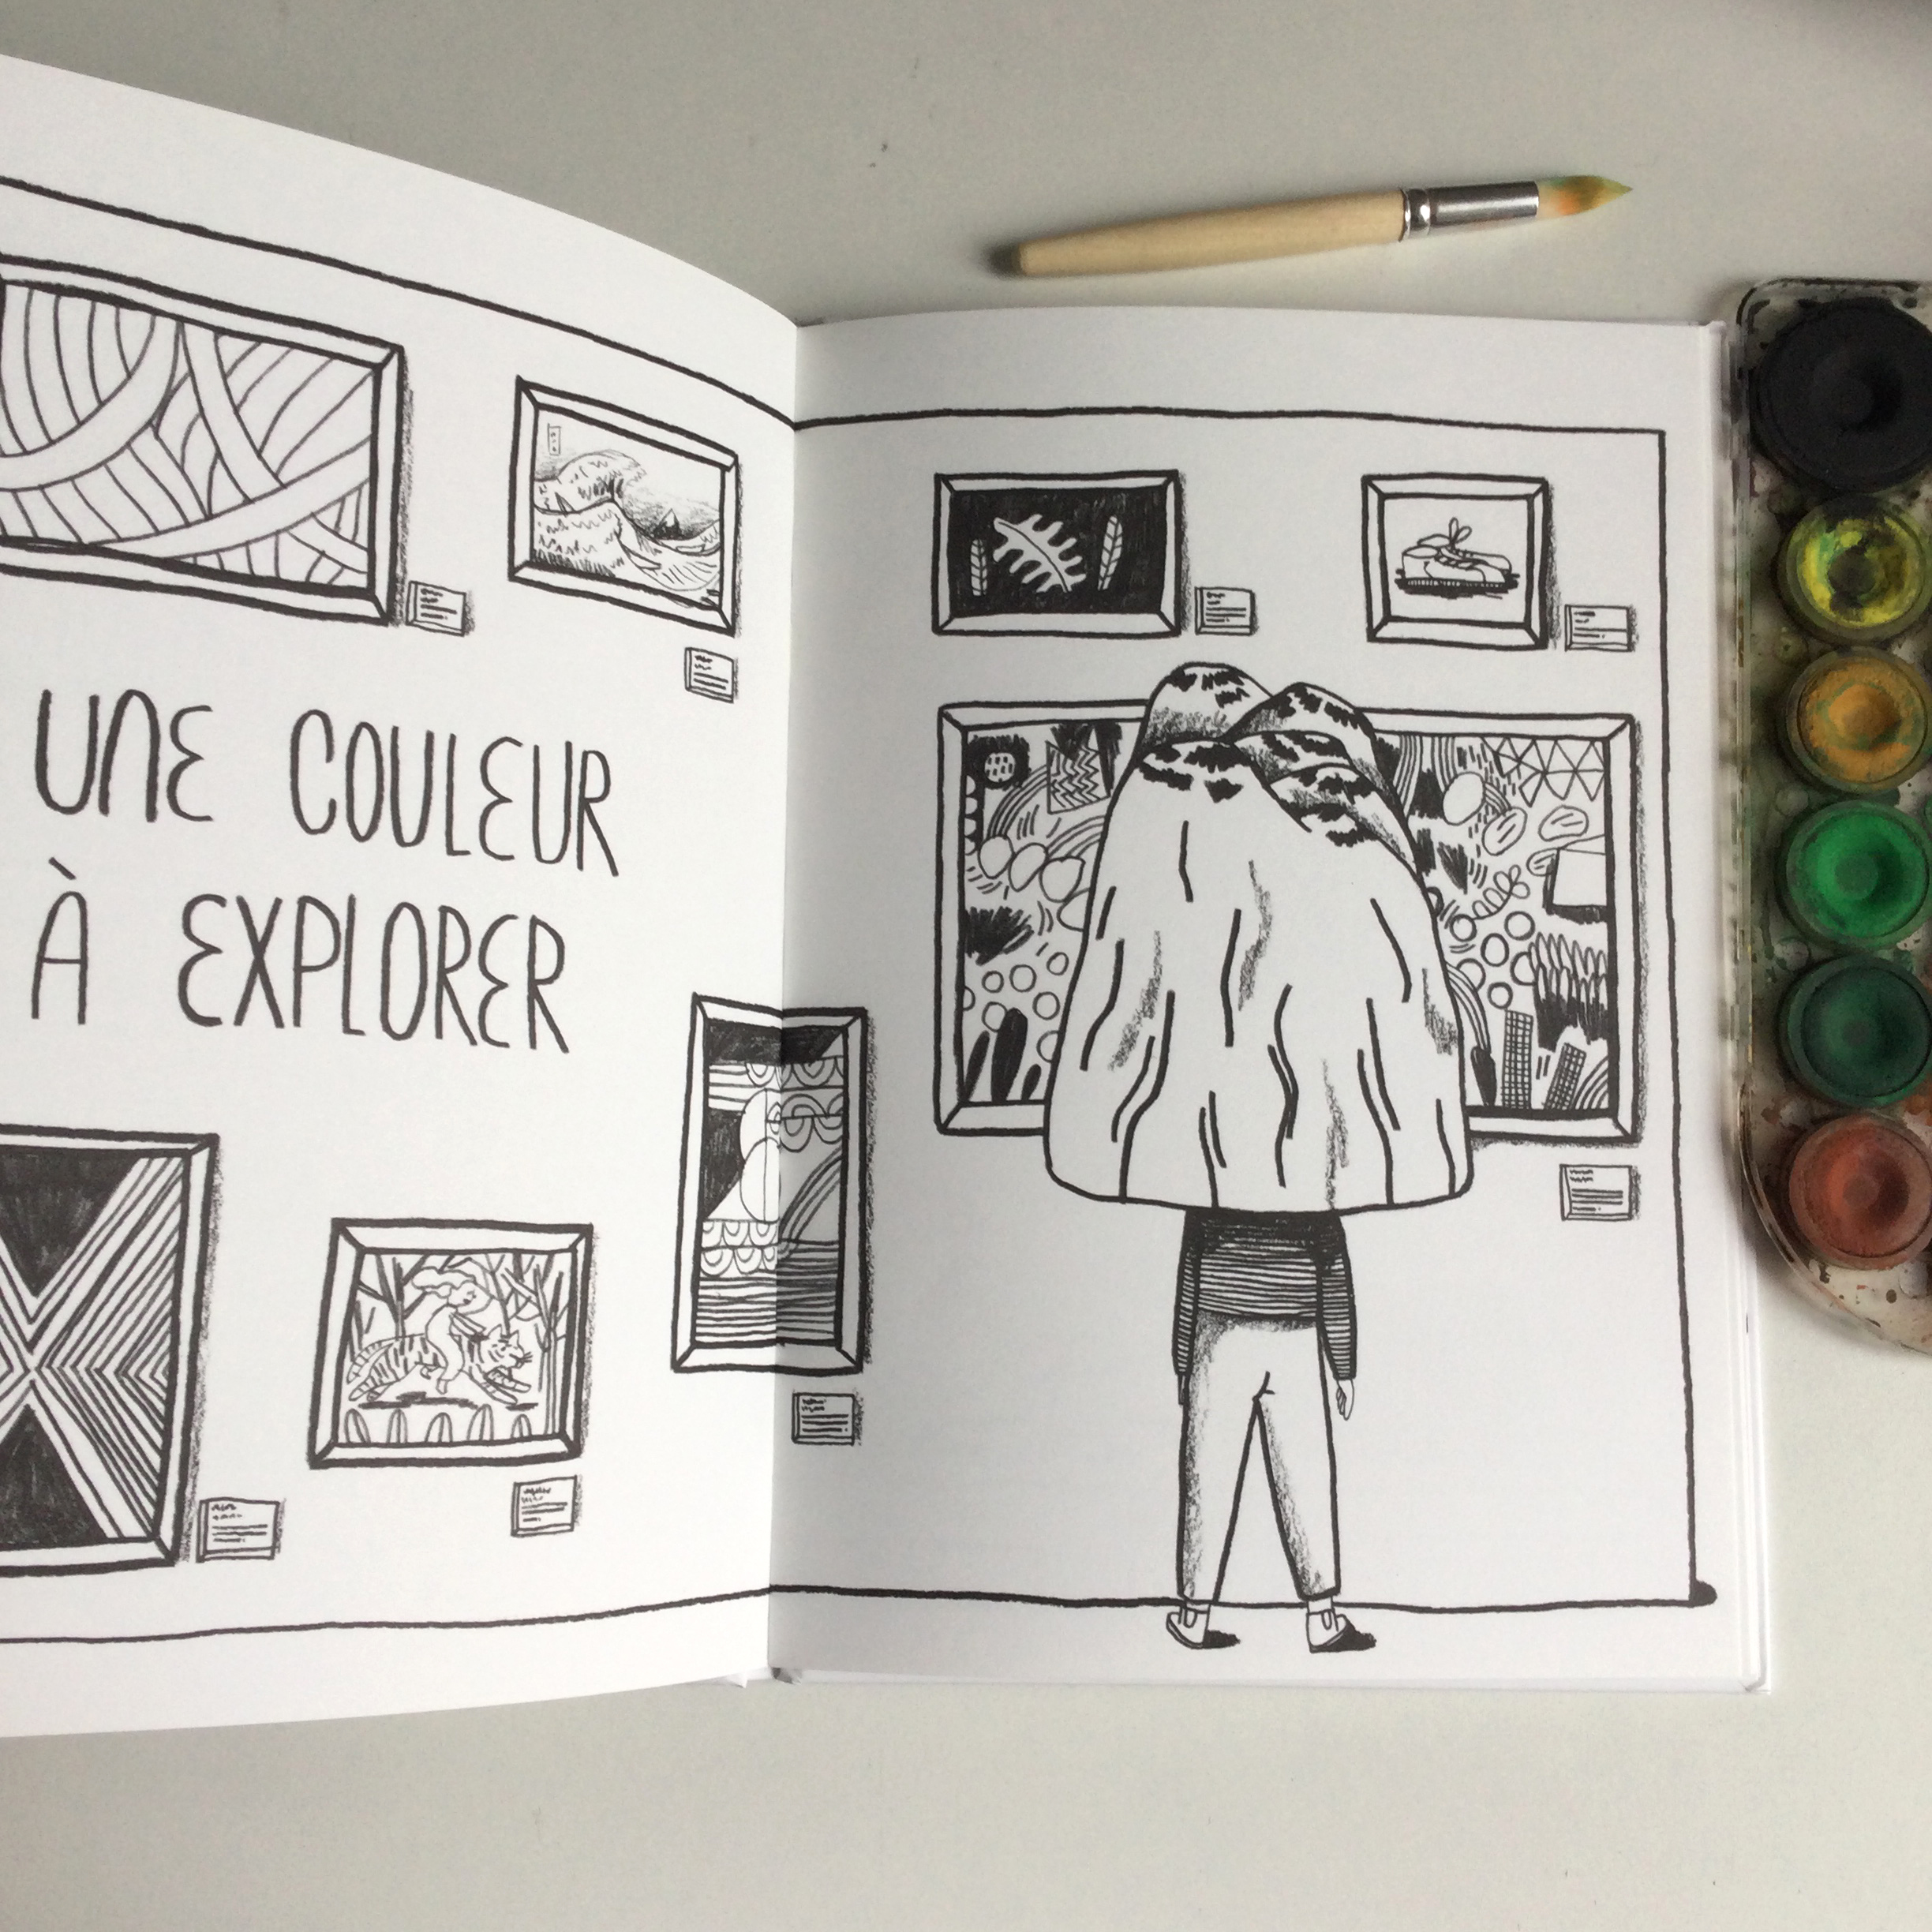 UNE COULEUR
À EXPLORER